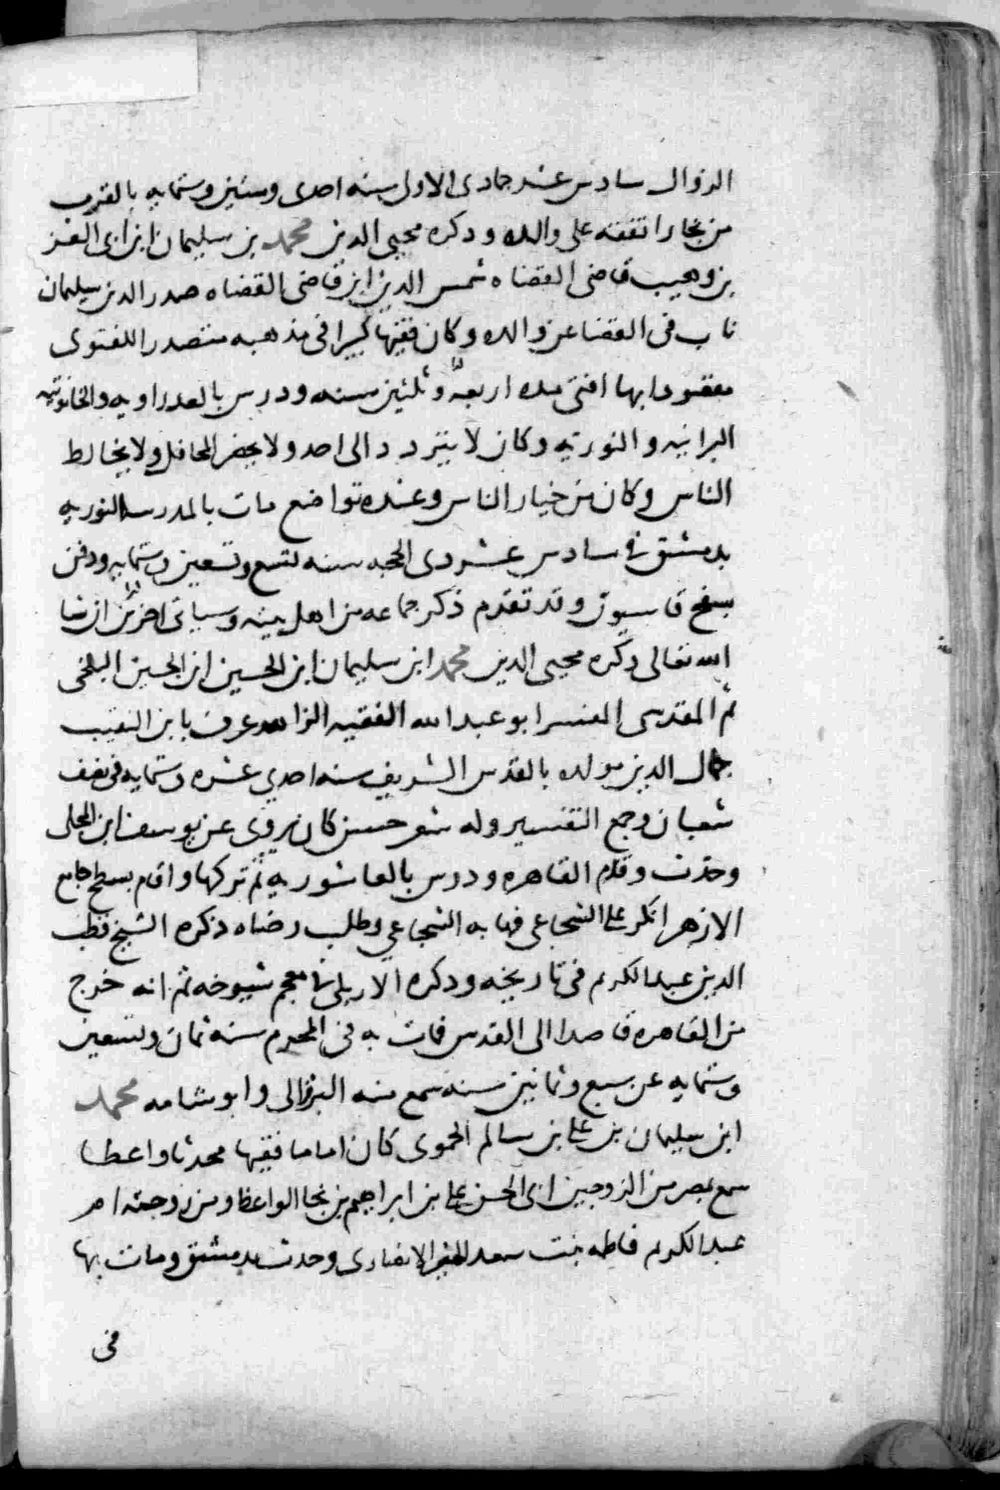 الزوال سادس عشر جمادى الاول سنه احدى وستين وستمايه بالقرب
من بخارا تفقه على والده وذكره محيى الدين محمد بن سليمان ابن ابى العز
بن وهيب قاضى القضاه شمس الدين ابن قاضى القضاه صدر الدين سليمان
ناب فى القضا عن والده وكان فقيها كبيرا فى مذهبه متصدرا للفتوى
مقصودا بها افتى مده اربعة وثلثين سنه ودرس بالعدراويه والخاتونيه
البرانيه والنوريه وكان لا يتردد الى احد ولا يحضر المحافل ولا يخالط
الناس وكان من خيار الناس وعنده تواضع مات بالمدرسه النوريه
بدمشق فى سادس عشر دى الحجه سنه تسع وتسعين وستمايه ودفن
بسفح قاسيون وقد تقدم ذكر جماعه من اهل بيته وسياتى اخرين ان شا
الله تعالى ذكره محيى الدين محمد ابن سليمان ابن الحسين ابن الحسين البلخى
ثم المقدسى المفسر ابو عبد الله الفقيه الزاهد عرف بابن النقيب
جمال الدين مولده بالقدس الشريف سنه احدي عشره وستمايه فى نصف
شعبان وجمع التفسير وله شعر حسن كان يروى عن يوسف ابن المحلى
وحدث وقدم القاهره ودرس بالعاشوريه ثم تركها واقام بسطح جامع
الازهر انكر على الشجاعى فهابه الشجاعي وطلب رضاه ذكره الشيخ قطب
الدين عبد الكريم فى تاريخه وذكره الاربلى فى معجم شيوخه ثم انه خرج
من القاهره قاصدا الى القدس فمات به فى المحرم سنه ثمان وتسعين
وستمايه عن سبع وثمانين سنه سمع منه البرزالى وابو شامه محمد
ابن سليمان بن على بن سالم الحموى كان اماما فقيها محدثا واعظا
سمع بمصر من الزوجين ابى الحسن على بن ابراهيم بن نجا الواعظ ومن زوجته ام
عبد الكريم فاطمه بنت سعد الخير الانصارى وحدث بدمشق ومات بها
فى